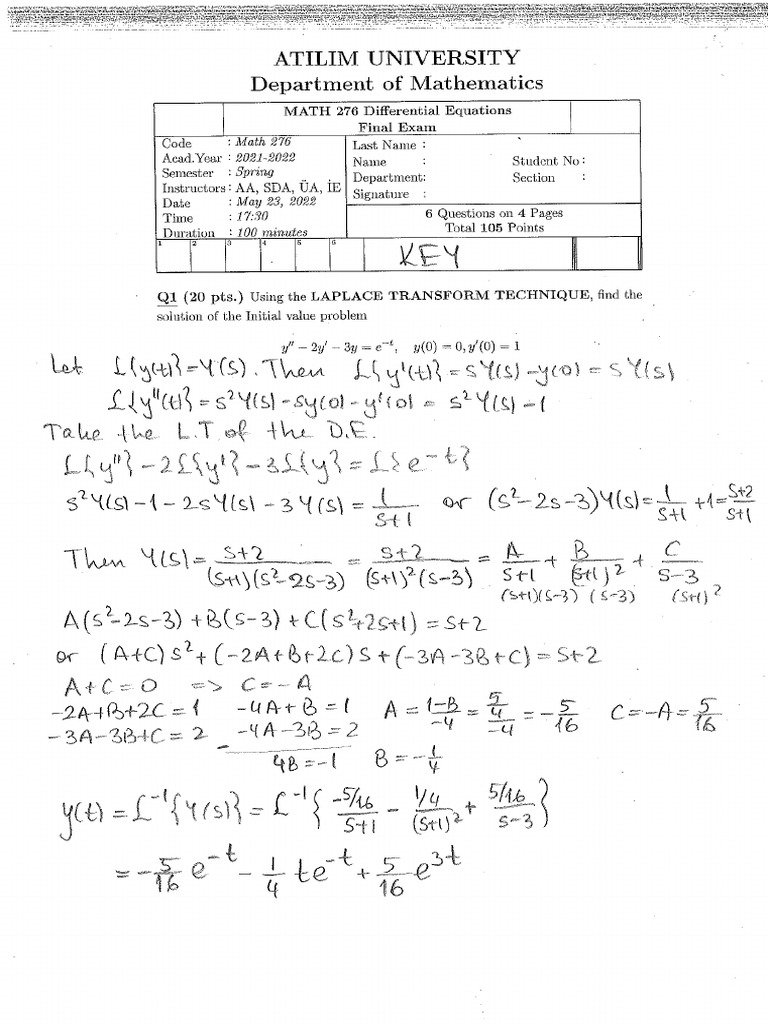 ATILIM UNIVERSITY
Department of Mathematics
MATH 276 Differential Equations
Final Exam
Code : Math 276
Acad.Year : 2021-2022
Semester : Spring
Instructors : AA, SDA, ÜA, İE
Date : May 23, 2022
Time : 17:30
Duration : 100 minutes
Last Name :
Name : Student No :
Department: Section :
Signature :
6 Questions on 4 Pages
Total 105 Points
1 2 3 4 5 6
KEY
Q1 (20 pts.) Using the LAPLACE TRANSFORM TECHNIQUE, find the
solution of the Initial value problem
y'' − 2y' − 3y = e^{−t}, y(0) = 0, y'(0) = 1
Let ℒ{y(t)} = Y(s). Then ℒ{y'(t)} = sY(s) − y(0) = sY(s)
ℒ{y''(t)} = s²Y(s) − sy(0) − y'(0) = s²Y(s) − 1
Take the L.T of the D.E.
ℒ{y''} − 2ℒ{y'} − 3ℒ{y} = ℒ{e^{−t}}
s²Y(s) − 1 − 2sY(s) − 3Y(s) = 1/(s+1) or (s² − 2s − 3)Y(s) = 1/(s+1) + 1 = (s+2)/(s+1)
Then Y(s) = (s+2)/((s+1)(s²−2s−3)) = (s+2)/((s+1)²(s−3)) = A/(s+1) + B/(s+1)² + C/(s−3)
(s+1)(s−3) (s−3) (s+1)²
A(s²−2s−3) + B(s−3) + C(s²+2s+1) = s+2
or (A+C)s² + (−2A+B+2C)s + (−3A−3B+C) = s+2
A+C = 0 => C = −A
−2A+B+2C = 1 −4A+B = 1 A = (1−B)/−4 = (5/4)/−4 = −5/16 C = −A = 5/16
−3A−3B+C = 2 −4A−3B = 2
− 4B = −1 B = −1/4
y(t) = ℒ⁻¹{Y(s)} = ℒ⁻¹{ (−5/16)/(s+1) − (1/4)/(s+1)² + (5/16)/(s−3) }
= −5/16 e^{−t} − 1/4 te^{−t} + 5/16 e^{3t}